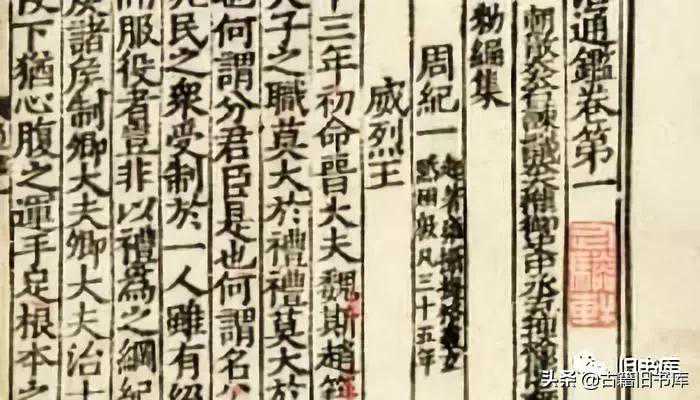 通鑑卷第一
朝散大夫右諫議大夫權御史中丞充理檢使
勑編集
周紀一
起著雍攝提格盡玄
黓困敦凡三十五年
威烈王
三年初命晉大夫魏斯趙籍
天子之職莫大於禮禮莫大於
也何謂分君臣是也何謂名公
兆民之衆受制於一人雖有絕
而服役者豈非以禮為之綱紀
諸侯制卿大夫卿大夫治士
下猶心腹之運手足根本之
旧书库
头条 @古籍旧书库